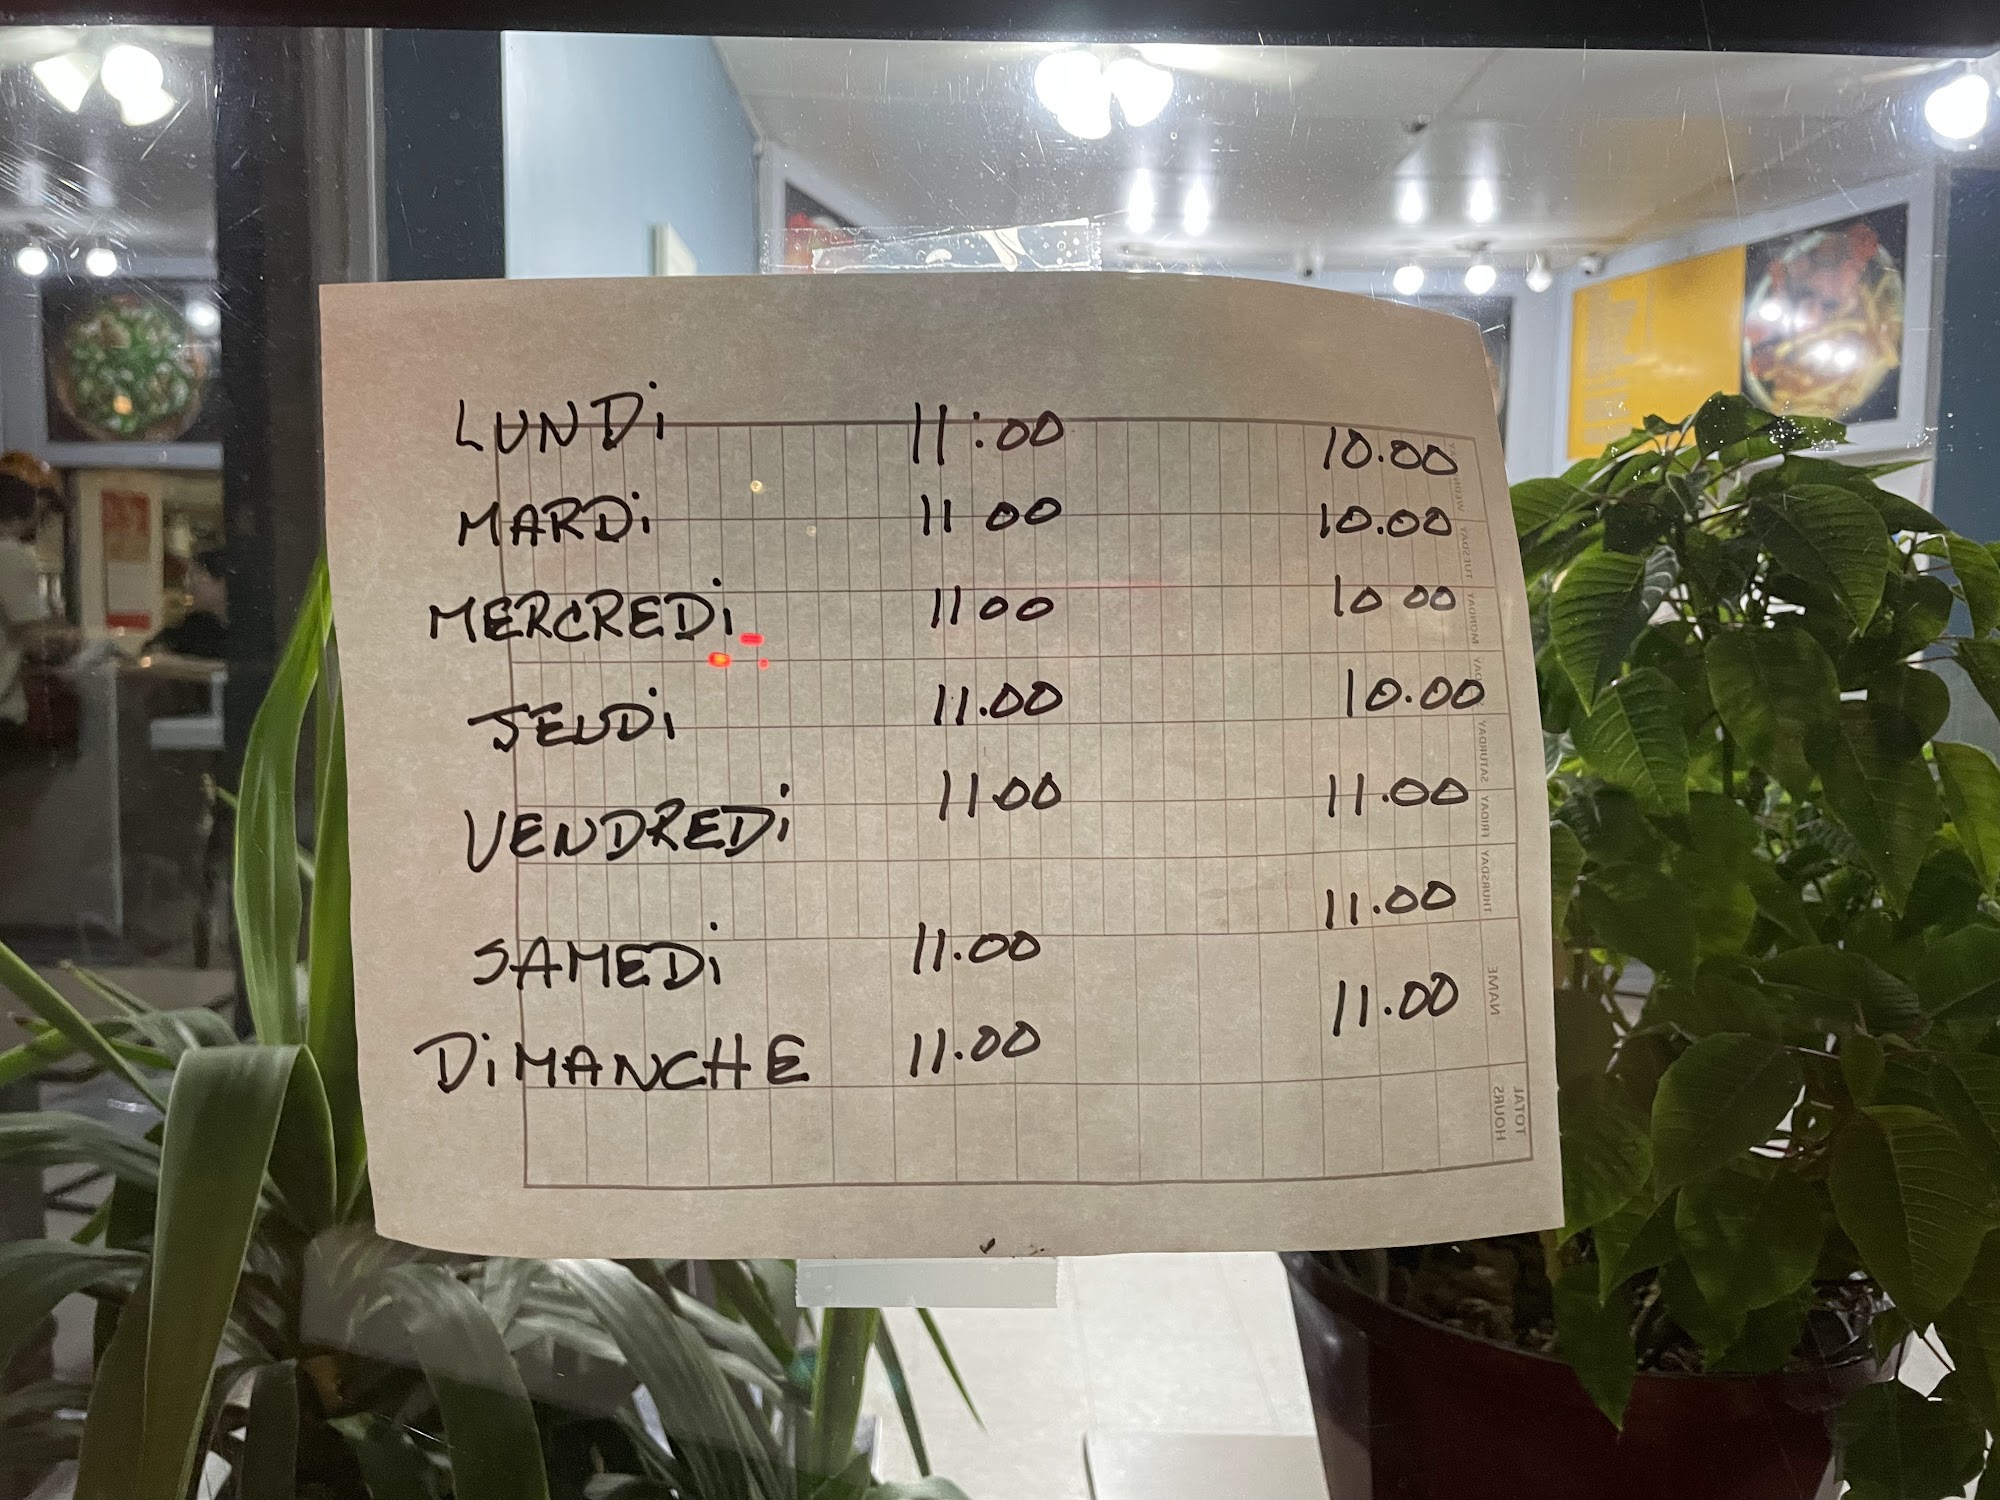 LUNDi 11:00 10.00
MARDi 11 00 10.00
MERCREDi 11 00 10 00
JEUDi 11.00 10.00
VENDREDi 11.00 11.00
SAMEDi 11.00 11.00
DiMANCHE 11.00 11.00
TUESDAY
MONDAY
SATURDAY
FRIDAY
THURSDAY
NAME
TOTAL
HOURS